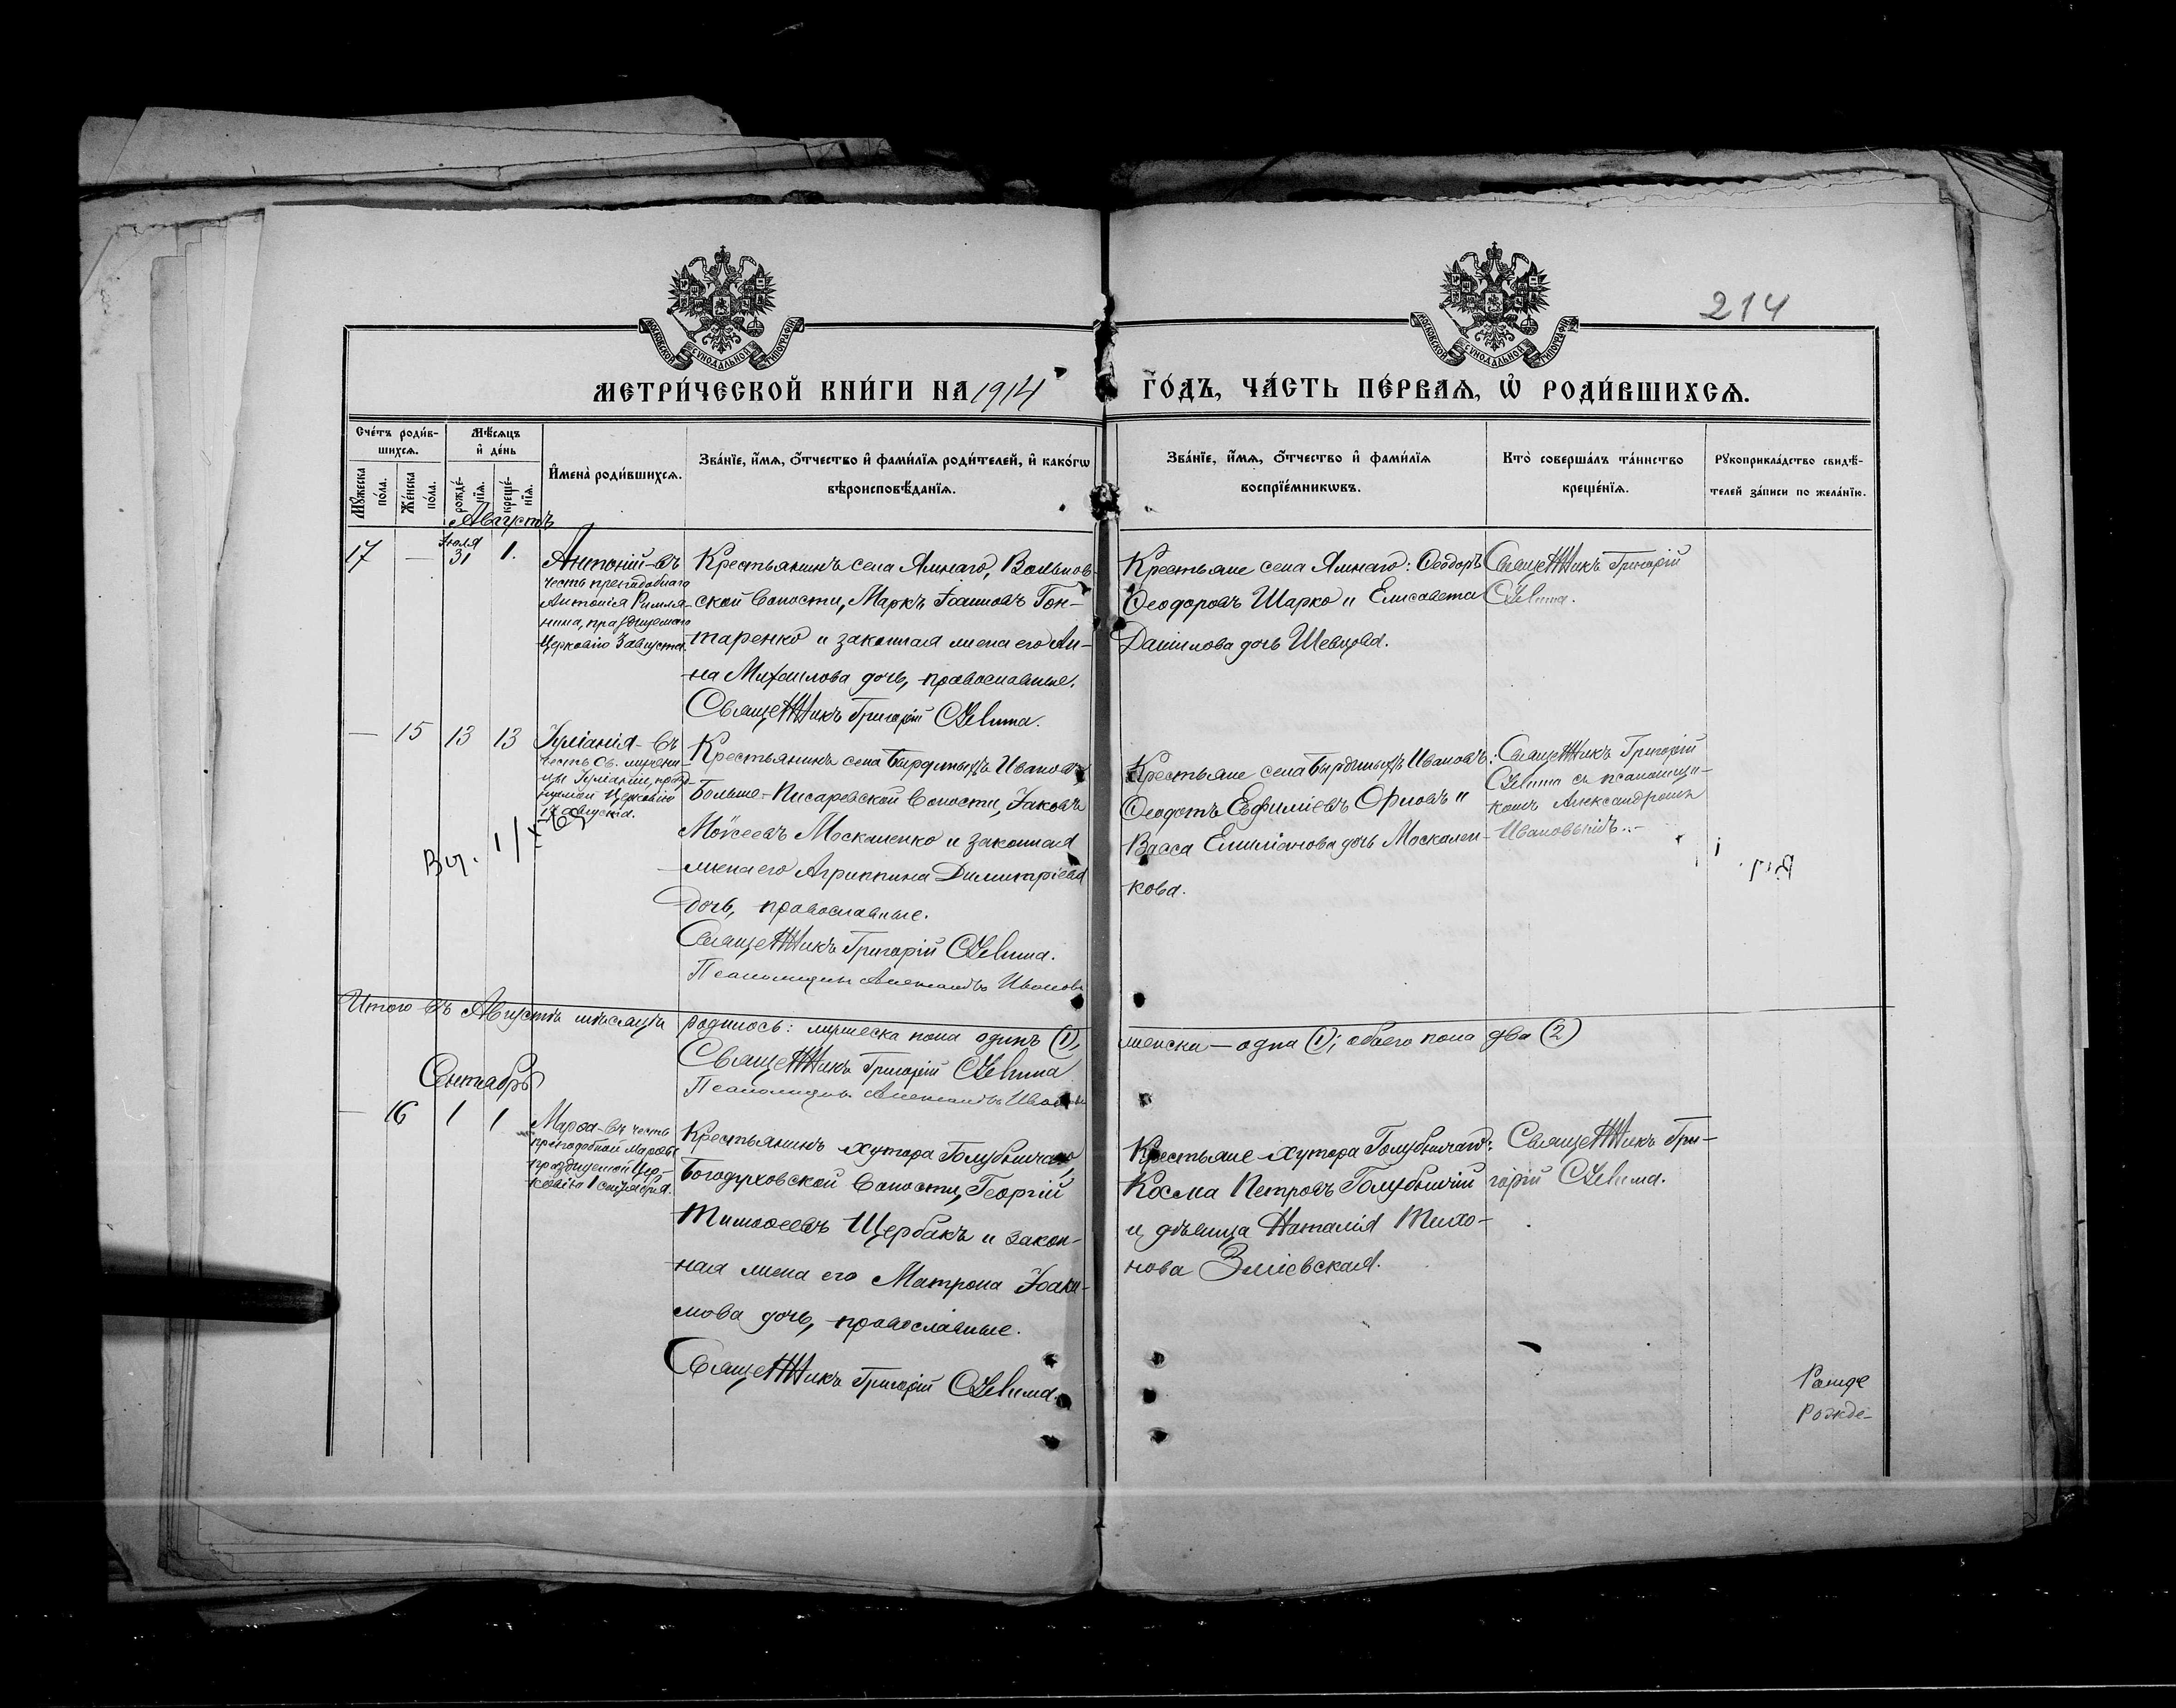 214
МЕТРИ́ЧЕСКОЙ КНИ́ГИ НА 1914 ГО́ДЪ, ЧА́СТЬ ПЕ́РВАѦ, Ѡ҆ РОДИ́ВШИХСѦ.
Сче́тъ роди́в-
шихсѧ.
Мꙋжеска по́ла.
Же́нска по́ла.
Мѣ́сѧцъ
и҆ де́нь
рожде́-
нїѧ.
креще́-
нїѧ.
И҆мена̀ роди́вшихсѧ.
Зва́нїе, и҆́мѧ, ѻ҆́тчество и҆ фами́лїѧ роди́телей, и҆ како́гѡ
вѣроисповѣ́данїѧ.
Зва́нїе, и҆́мѧ, ѻ҆́тчество и҆ фами́лїѧ
воспрїе́мникѡвъ.
Кто̀ соверша́лъ та́инство
креще́нїѧ.
Рꙋкоприкла́дство свидѣ́-
телей за́писи по жела́нїю.
Августъ
17 — Іюля 31 1.
Антоній - въ
честь преподобнаго
Антонія Римля-
нина, празднуемаго
Церковію 3 августа.
Крестьянинъ села Ямнаго, Вольнов-
ской волости, Маркъ Іоанновъ Гон-
таренко и законная жена его Ан-
на Михаилова дочь, православные.
Священникъ Григорій
Крестьяне села Ямнаго: Ѳеодоръ
Ѳеодоровъ Шарко и Елисавета
Даніилова дочь Шевцова.
Священникъ Григорій
— 15 13 13
Іуліанія - въ
честь св. мучени-
цы Іуліаніи, празд-
нуемой Церковію
17 августа.
Крестьянинъ села Бырдиныхъ Ивановъ
Больше-Писаревской волости, Іаковъ
Моѵсеевъ Москаленко и законная
жена его Агриппина Димитріева
дочь, православные.
Священникъ Григорій
Псаломщикъ Александръ Ивановъ
Крестьяне села Бырдиныхъ Ивановъ:
Ѳеодотъ Евфиміевъ Орловъ и
Васса Емиліанова дочь Москален-
кова.
Священникъ Григорій
съ псаломщи-
комъ Александромъ
Ивановымъ.
Итого въ Августѣ мѣсяцѣ родилось: мужеска пола одинъ (1), женска — одна (1); обоего пола два (2)
Священникъ Григорій
Псаломщикъ Александръ Ивановъ
Сентябрь
— 16 1 1
Марѳа - въ честь
преподобной Марѳы
празднуемой Цер-
ковію 1 сентября.
Крестьянинъ хутора Голубничаго,
Богодуховской волости, Георгій
Тимоѳеевъ Щербакъ и закон-
ная жена его Матрона Іоаки-
мова дочь, православные.
Священникъ Григорій
Крестьяне хутора Голубничаго:
Косма Петровъ Голубничій
и дѣвица Наталія Тихо-
нова Зміевская.
Священникъ Гри-
горій
Рожде-